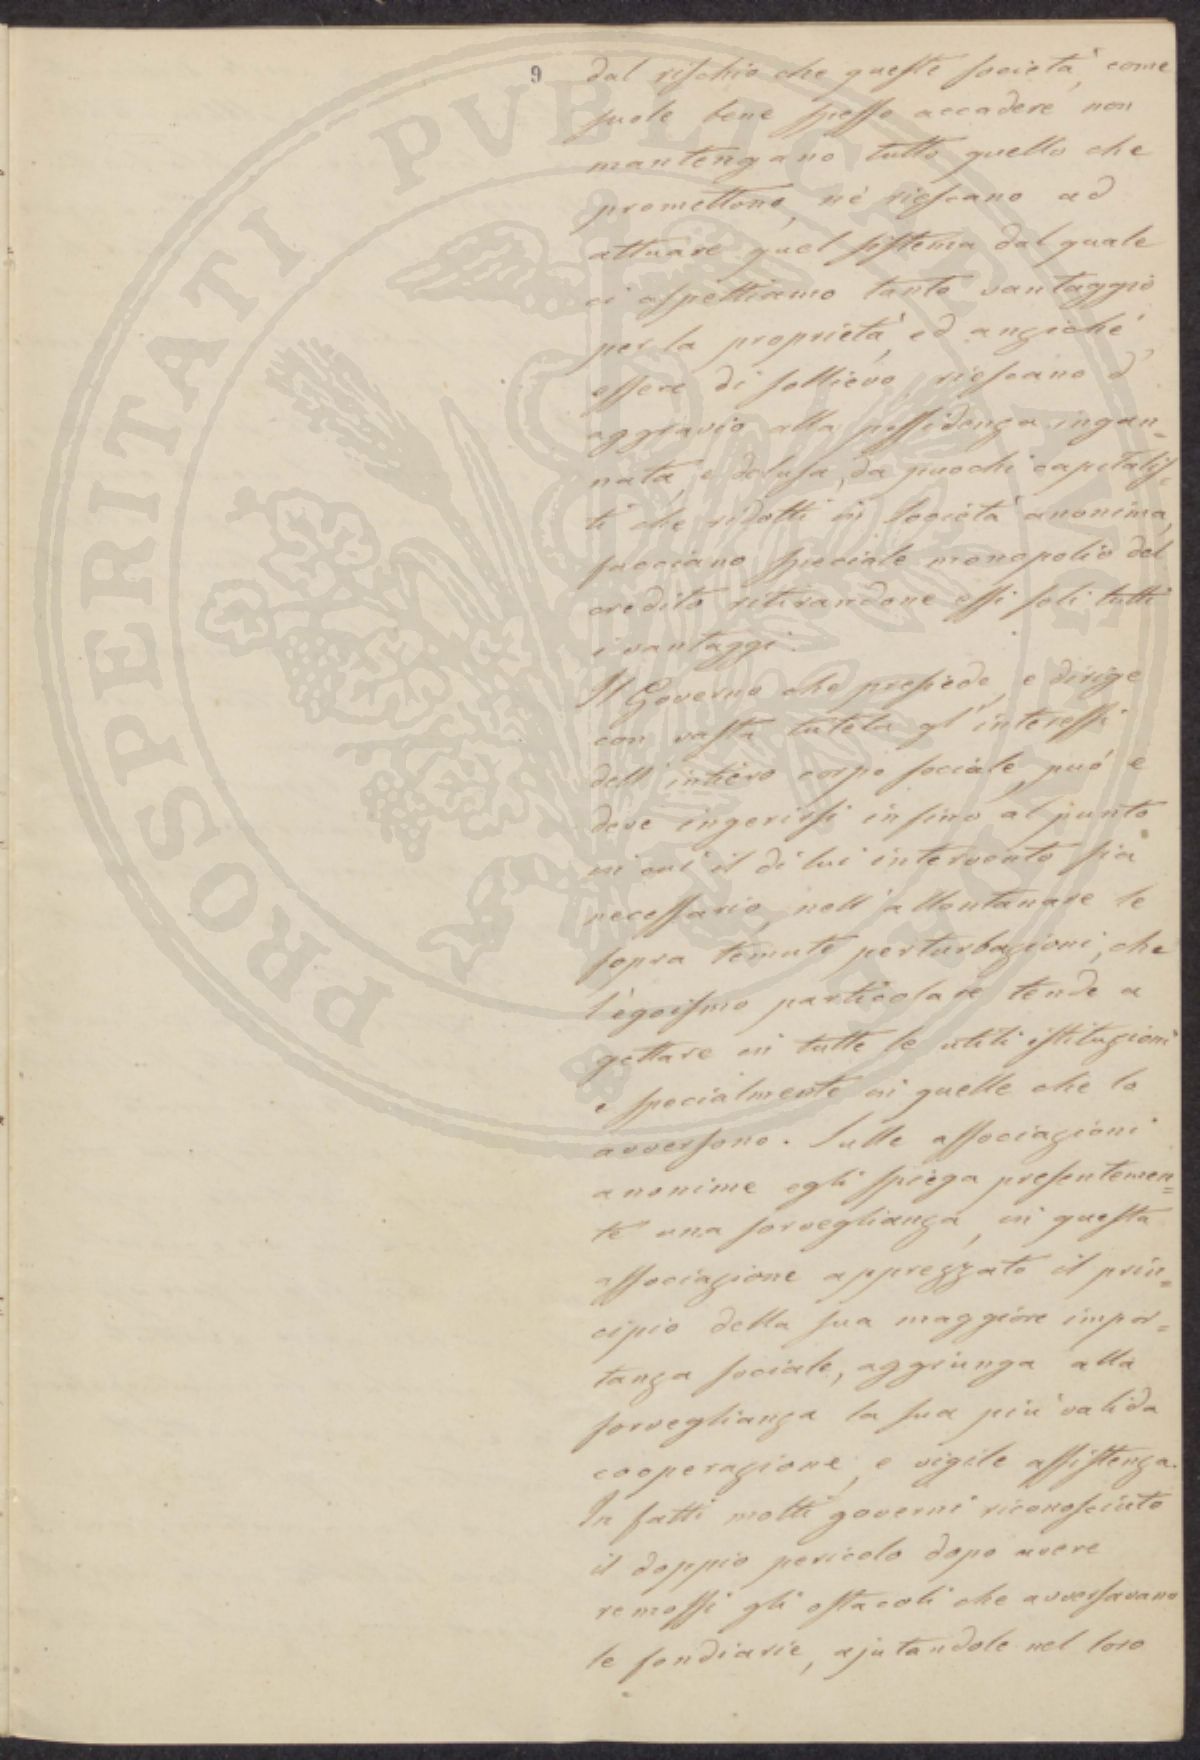 9
dal rischio che queste società, come
suole bene spesso accadere non
mantengano tutto quello che
promettono, nè riescano ad
attuare quel sistema dal quale
ci aspettiamo tanto vantaggio
per la proprietà, ed anziché
essere di sollievo, riescano d'
aggravio alla possidenza ingan=
nata, e delusa, da puochi capitalis=
ti che ridotti in Società anonima,
facciano speciale monopolio del
credito ritirandone essi soli tutti
i vantaggi.
Il Governo che presiede, e dirige
con vasta tutela gl'interessi
dell'intiero corpo sociale, può e
deve ingerirsi insino al punto
in cui il di lui intervento sia
necessario, nell'allontanare le
sopra temute perturbazioni, che
l'egoismo particolare tende a
gettare in tutte le utili istituzioni
e specialmente in quelle che lo
avversono. Sulle associazioni
anonime egli spiega presentemen=
te una sorveglianza, in questa
associazione apprezzato il prin=
cipio della sua maggiore impor=
tanza sociale, aggiunga alla
sorveglianza la sua più valida
cooperazione, e vigile assistenza.
In fatti molti governi riconosciuto
il doppio pericolo dopo avere
remossi gli ostacoli che avversavano
le fondiarie, ajutandole nel loro
PROSPERITATI PVBLICAE